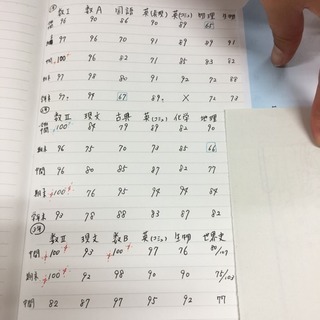 数I 数A 国語 英(表現) 英(コミュ) 物理 生物
96 90 86 90 89 65
97 96 70 91 89 89 91
100 96 82 71 85 83 82
97 98 80 91 92 72 88
学年末 97 94 67 89 × 72 73
数II 現文 古典 英(コミュ) 化学 地理
中間 100 84 79 89 82 90
期末 96 75 70 73 85 66
中間 96 80 85 87 82 77
期末 100 76 95 94 94 84
学年末 93 78 88 83 87 82
数III 現文 数B 英(コミュ) 生物 世界史
中間 100 93 100 97 76 80/103
期末 100 92 98 90 90 75/103
中間 82 87 97 95 92 77